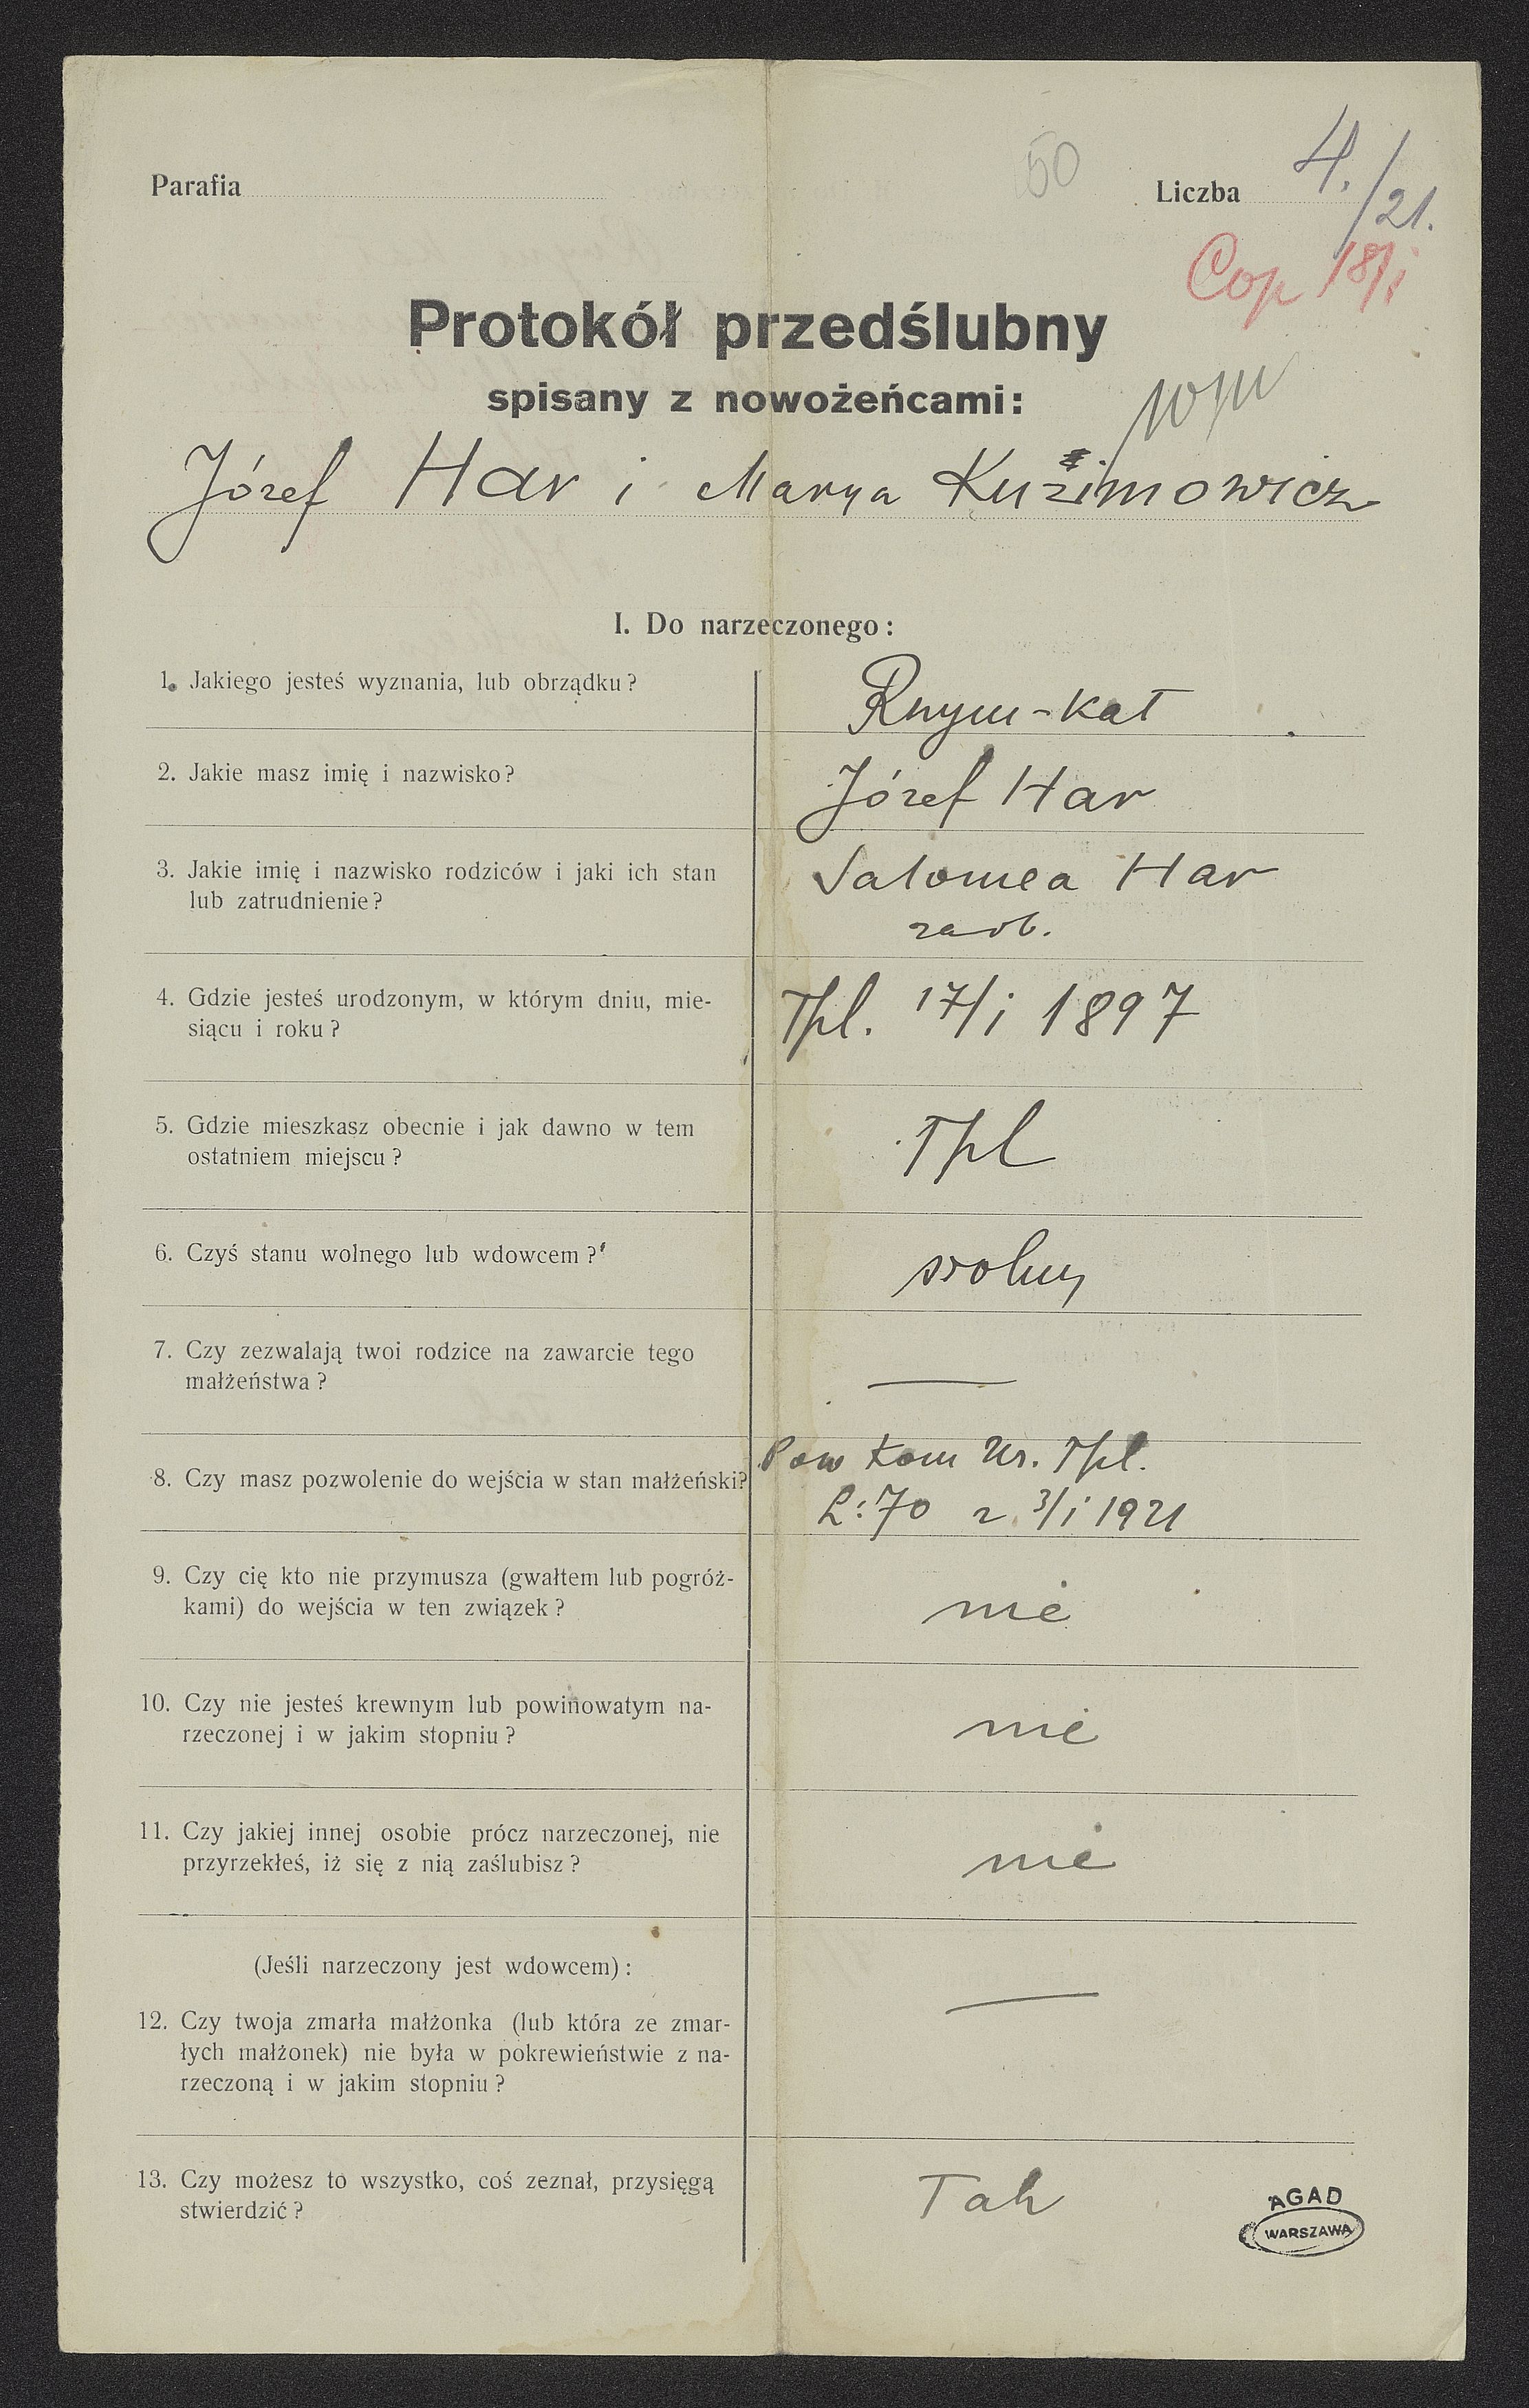 50
Parafia Liczba 4./21.
Cop 18/i
Protokół przedślubny
spisany z nowożeńcami:
Józef Har i Marya Kuzimowicz
I. Do narzeczonego:
1. Jakiego jesteś wyznania, lub obrządku? Rzym-kat
2. Jakie masz imię i nazwisko? Józef Har
3. Jakie imię i nazwisko rodziców i jaki ich stan Salomea Har
lub zatrudnienie? zarob.
4. Gdzie jesteś urodzonym, w którym dniu, mie- Tpl. 17/i 1897
siącu i roku?
5. Gdzie mieszkasz obecnie i jak dawno w tem Tpl
ostatniem miejscu?
6. Czyś stanu wolnego lub wdowcem? wolny
7. Czy zezwalają twoi rodzice na zawarcie tego
małżeństwa? —
Pow Kom Uz. Tpl.
8. Czy masz pozwolenie do wejścia w stan małżeński?
L: 70 z 3/i 1921
9. Czy cię kto nie przymusza (gwałtem lub pogróż-
kami) do wejścia w ten związek? nie
10. Czy nie jesteś krewnym lub powinowatym na-
rzeczonej i w jakim stopniu? nie
11. Czy jakiej innej osobie prócz narzeczonej, nie
przyrzekłeś, iż się z nią zaślubisz? nie
(Jeśli narzeczony jest wdowcem):
—
12. Czy twoja zmarła małżonka (lub która ze zmar-
łych małżonek) nie była w pokrewieństwie z na-
rzeczoną i w jakim stopniu?
13. Czy możesz to wszystko, coś zeznał, przysięgą Tak
stwierdzić?
AGAD
WARSZAWA